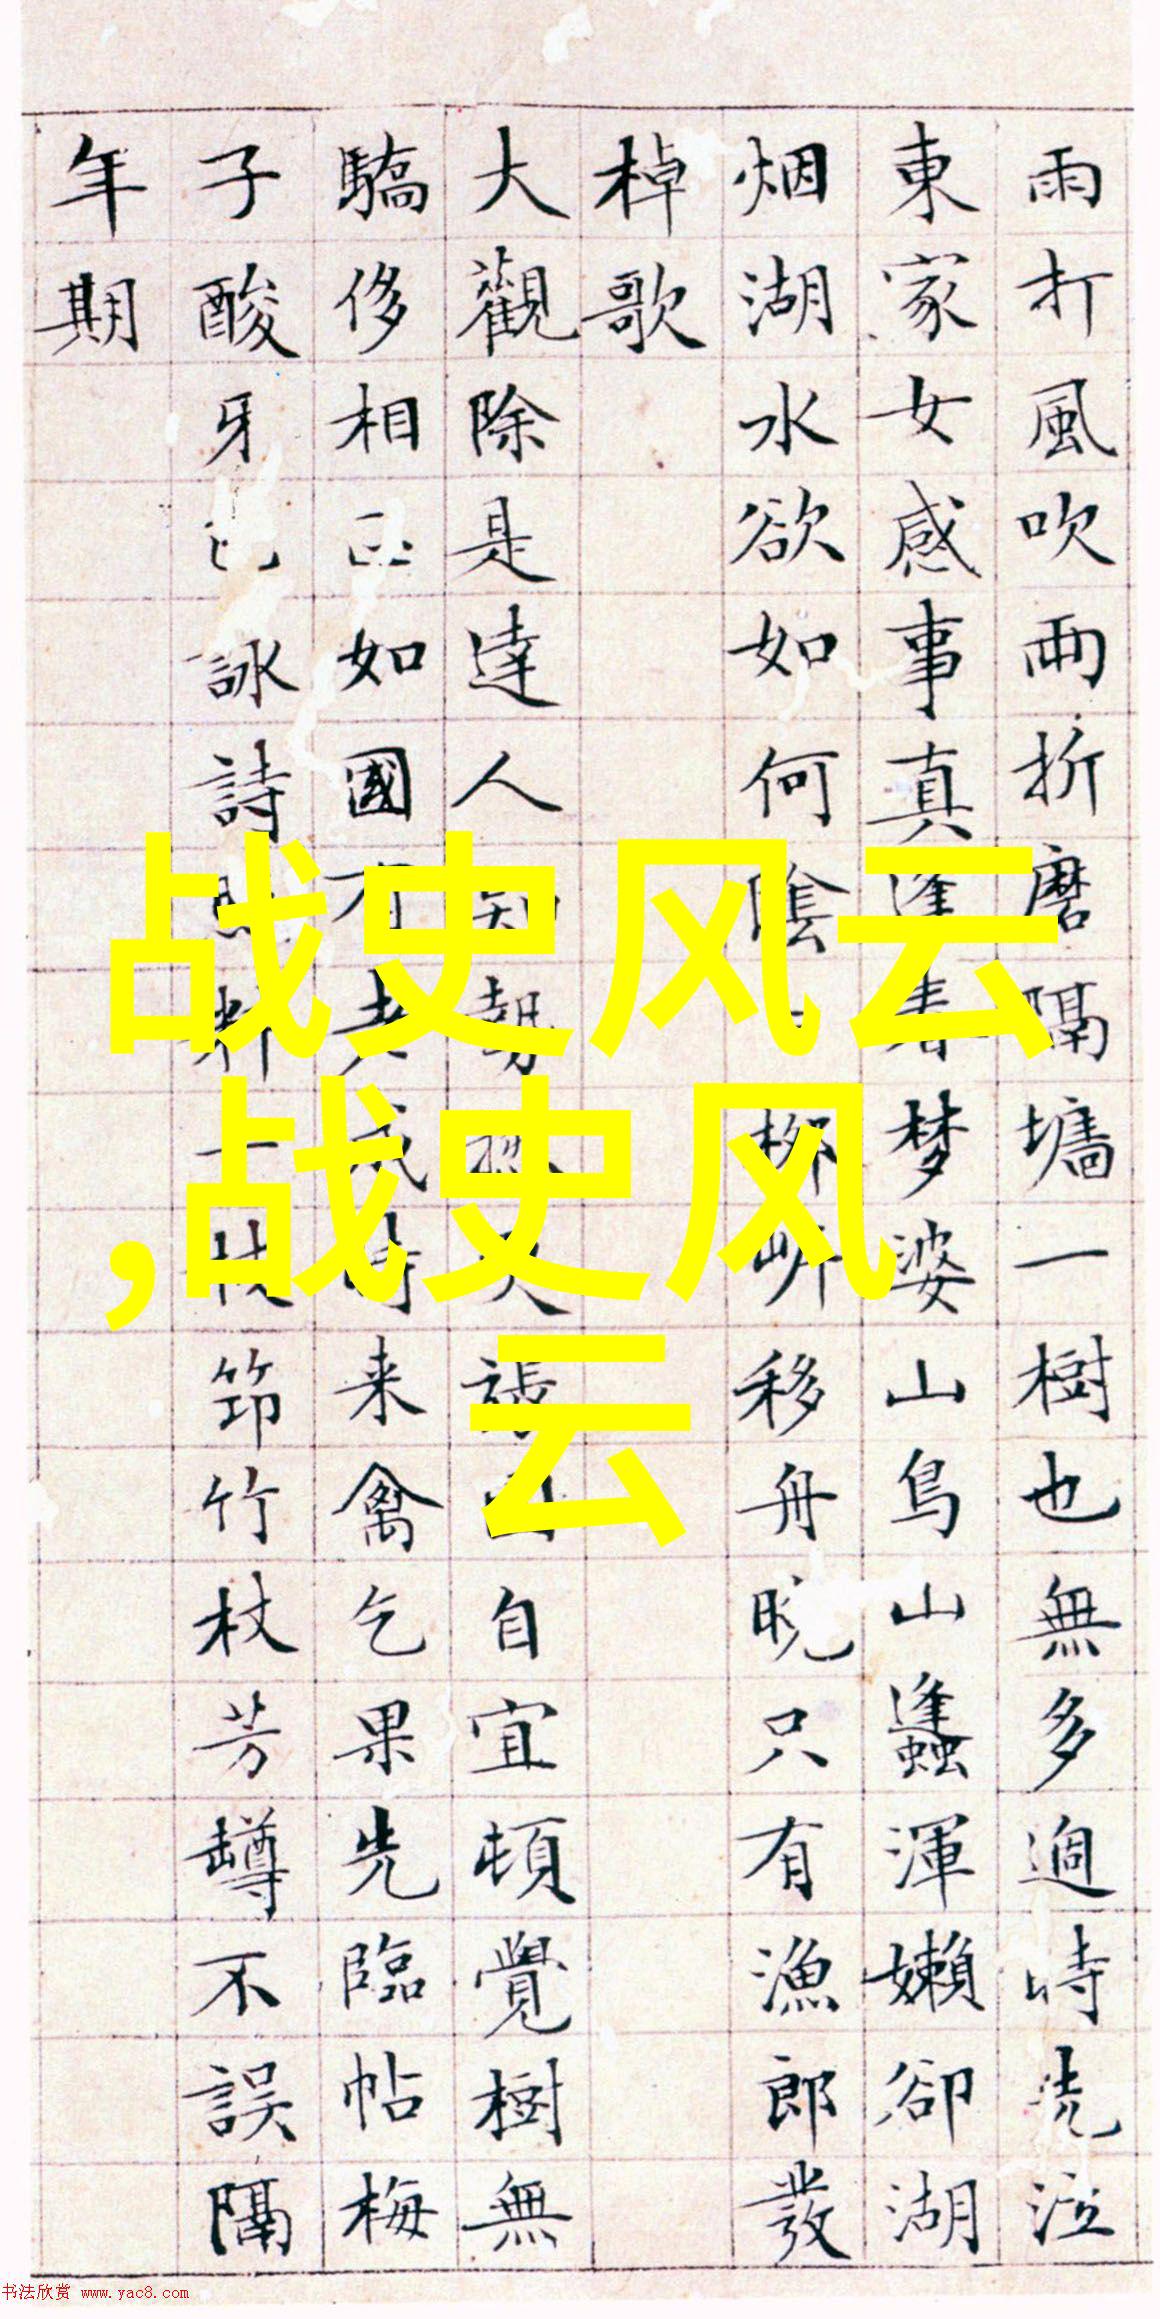 雨打風吹兩折磨隔墻一樹也無多過時泣
東家女感事真逢春梦婆山鳥山蠭渾嬾卻湖
烟湖水欲如何陰柳岍移舟晚只有漁郎發
棹歌
大觀除是達人知勢自宜頓覺樹無
驕侈相如國有老成時来禽乞果先臨帖梅
子酸牙詠詩料一枝筇竹杖芳罇不誤隔
年期
战史风云
,战史风
云
书法欣赏 www.yac8.com